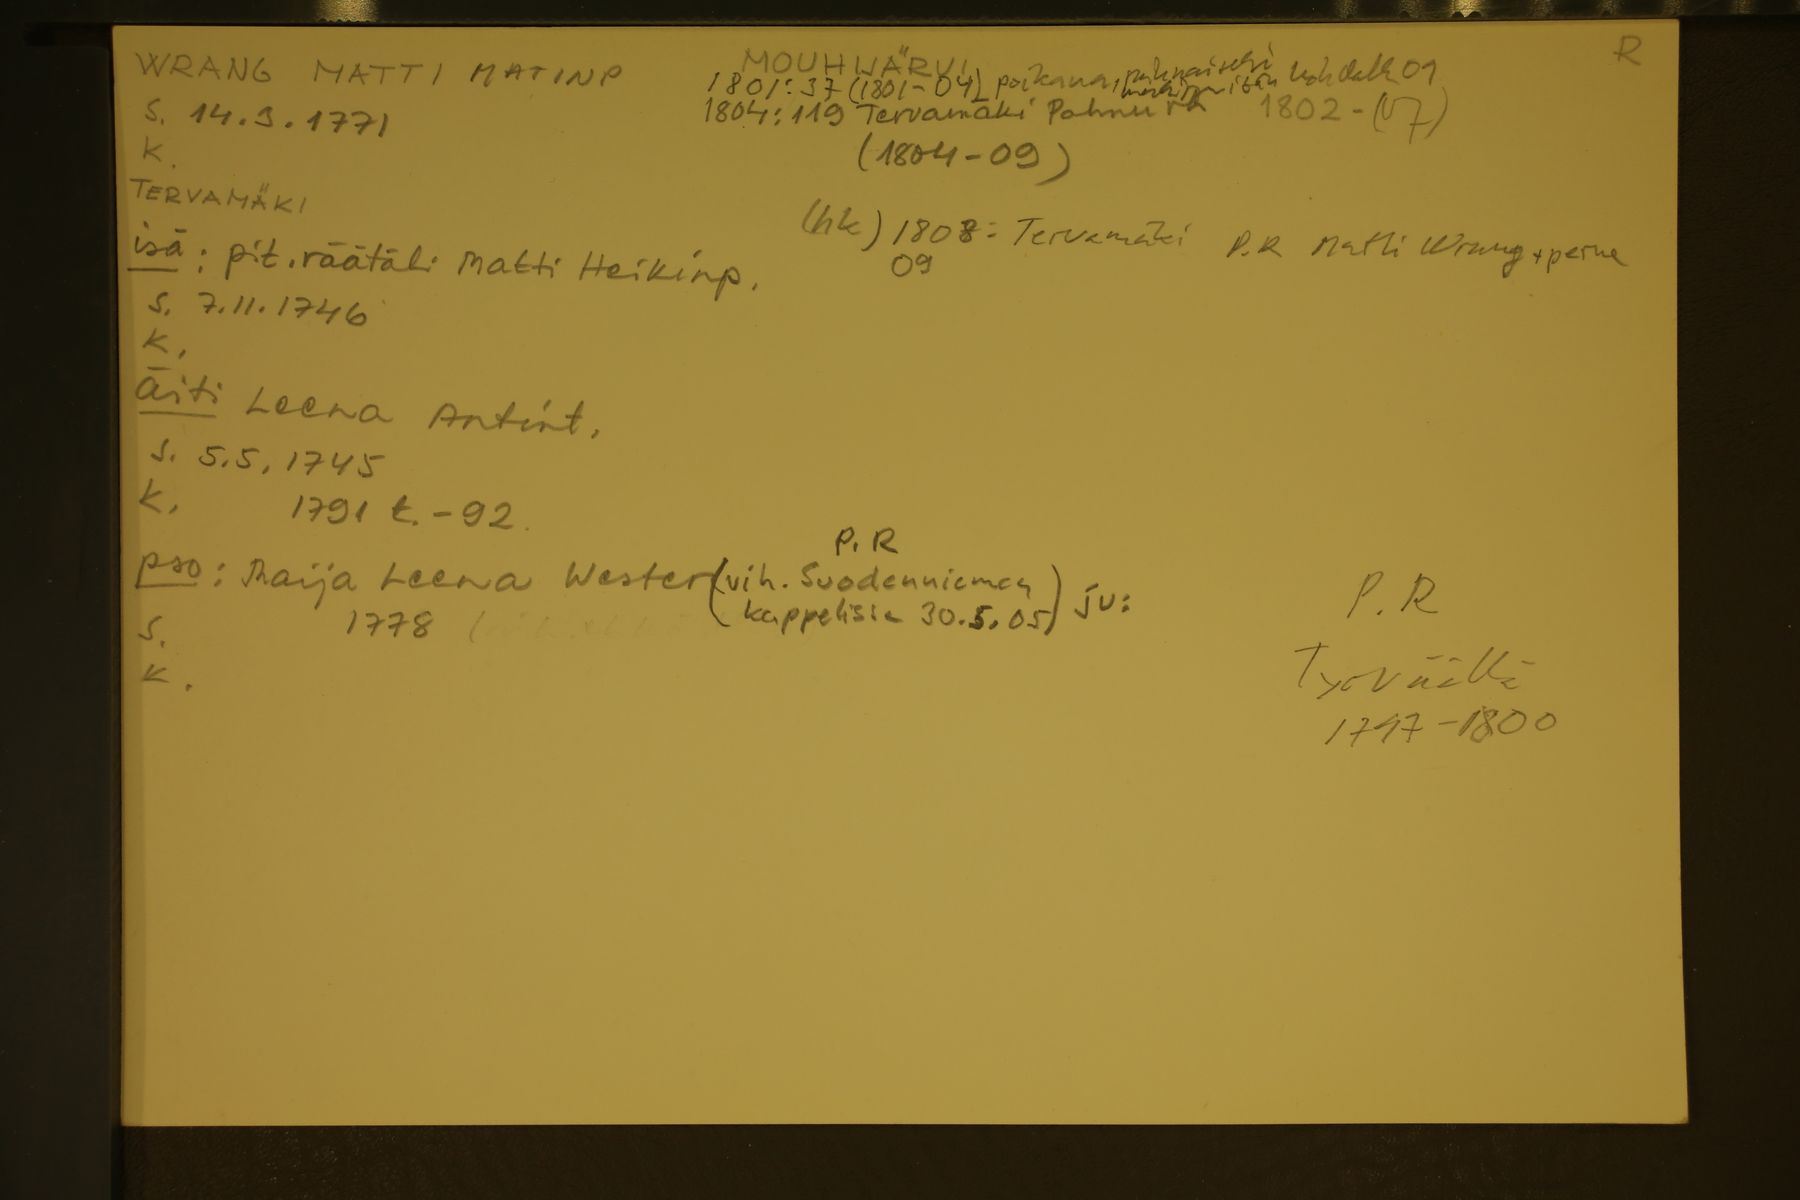 WRANG MATTI MATINP
MOUHIJÄRVI
R
1801:37 (1801-04) poikana, kohdalla 09
S. 14.9.1771
1804:119 Tervamäki 1802-(07)
(1804-09)
K.
TERVAMÄKI
(hk) 1808: Tervamäki P.R Matti Wrang + perhe
09
isä: pit. räätäli Matti Heikinp.
S. 7.11.1746
K.
Äiti Leena Antint.
S. 5.5.1745
K. 1791 t. -92.
P.R
pso: Maija Leena Wester (vih. Suodenniemen
kappelissa 30.5.05) ju:
S. 1778
K.
P.R
Työväällä
1797-1800